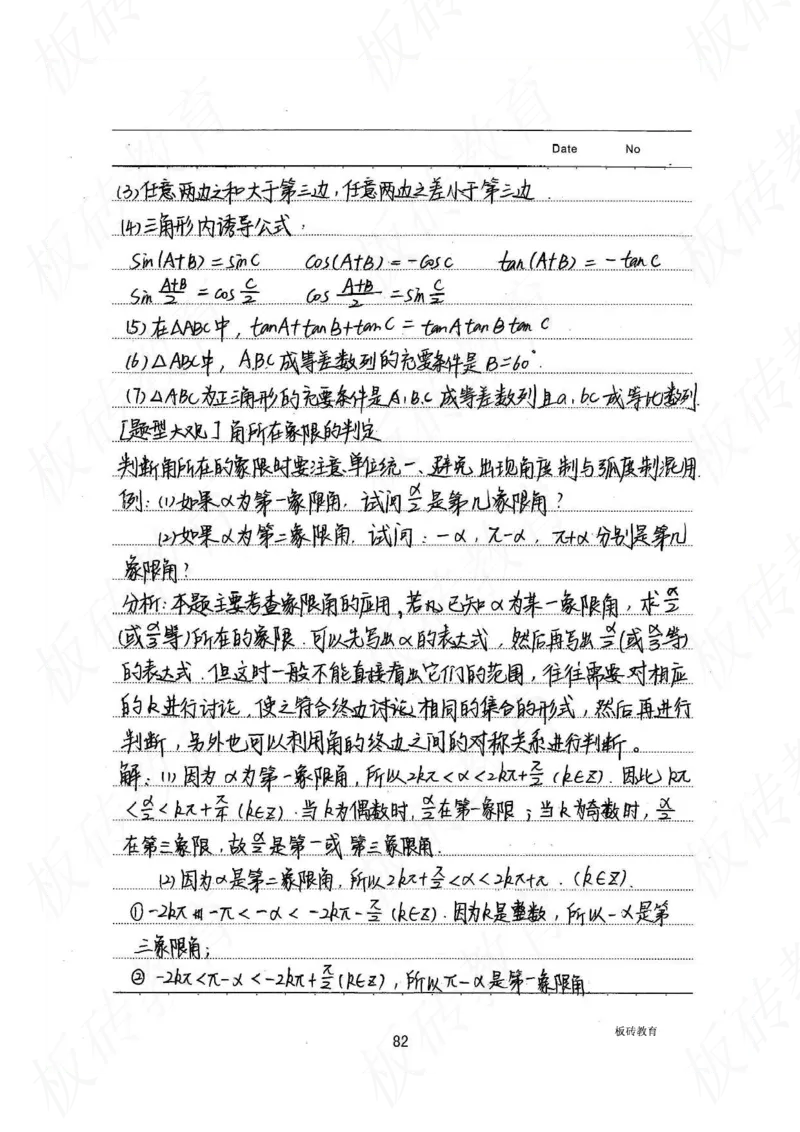 Date No
(3)任意两边之和大于第三边,任意两边之差小于第三边.
(4)三角形内诱导公式:
Sin(A+B)=sinC cos(A+B)=-cosC tan(A+B)=-tanC
sin (A+B)/2 = cos C/2 cos (A+B)/2 = sin C/2
(5)在△ABC中,tanA+tanB+tanC=tanAtanBtanC
(6)△ABC中,A.B.C成等差数列的充要条件是B=60°.
(7)△ABC为正三角形的充要条件是A,B,C成等差数列且a,b,c成等比数列.
[题型大观]角所在象限的判定
判断角所在的象限时要注意单位统一、避免出现角度制与弧度制混用.
例:(1)如果α为第一象限角,试问α/2是第几象限角?
(2)如果α为第二象限角,试问:-α,π-α,π+α分别是第几
象限角?
分析:本题主要考查象限角的应用,若凡已知α为某一象限角,求α/2
(或α/3等)所在的象限.可以先写出α的表达式,然后再写出α/2(或α/3等)
的表达式.但这时一般不能直接看出它们的范围,往往需要对相应
的k进行讨论,使之符合终边讨论相同的集合的形式,然后再进行
判断,另外也可以利用角的终边之间的对称关系进行判断。
解:(1)因为α为第一象限角,所以2kπ<α<2kπ+π/2(k∈Z).因此kπ
<α/2<kπ+π/4(k∈Z).当k为偶数时,α/2在第一象限;当k为奇数时,α/2
在第三象限,故α/2是第一或第三象限角.
(2)因为α是第二象限角,所以2kπ+π/2<α<2kπ+π.(k∈Z).
①-2kπ-π<-α<-2kπ-π/2(k∈Z).因为k是整数,所以-α是第
三象限角;
②-2kπ<π-α<-2kπ+π/2(k∈Z),所以π-α是第一象限角
板砖教育
82